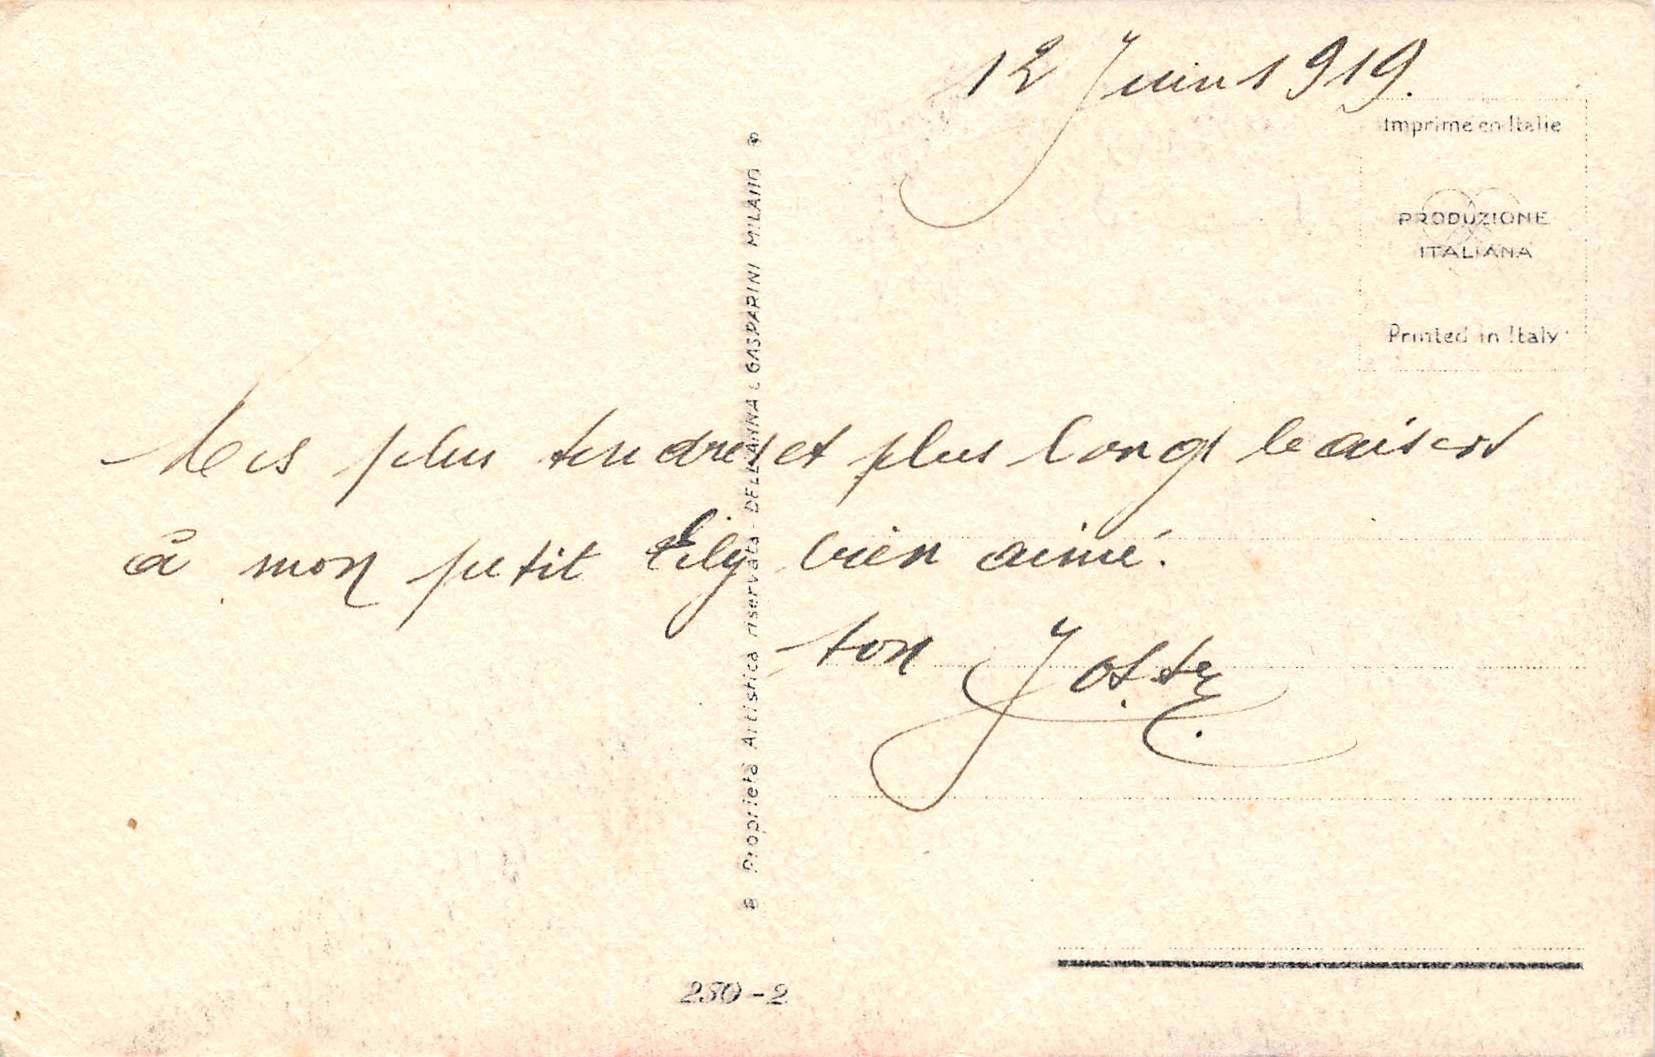 12 Juin 1919.
Imprimé en Italie
PRODUZIONE
ITALIANA
Printed in Italy
Mes plus tendres et plus longs baisers
à mon petit Lily bien aimé.
ton
B Proprietà Artistica riservata - DELL'ANNA & GASPARINI MILANO
280-2